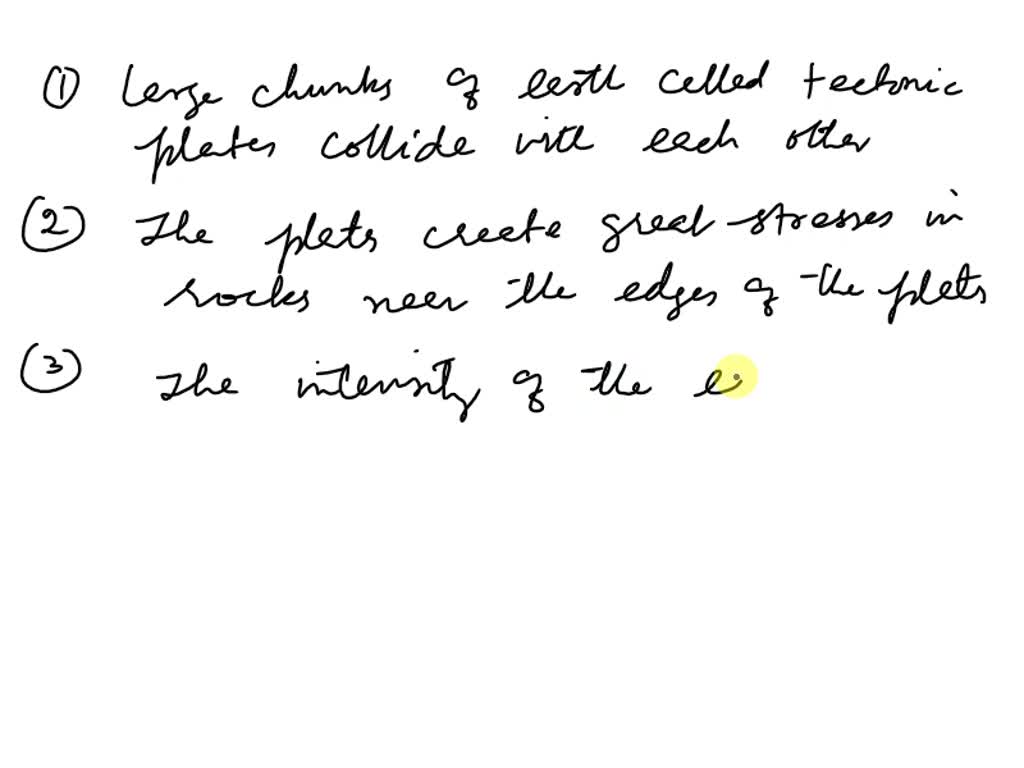 ① Large chunks of earth called tectonic
plates collide with each other
② The plats create great stresses in
rocks near the edges of the plats
③ The intensity of the e